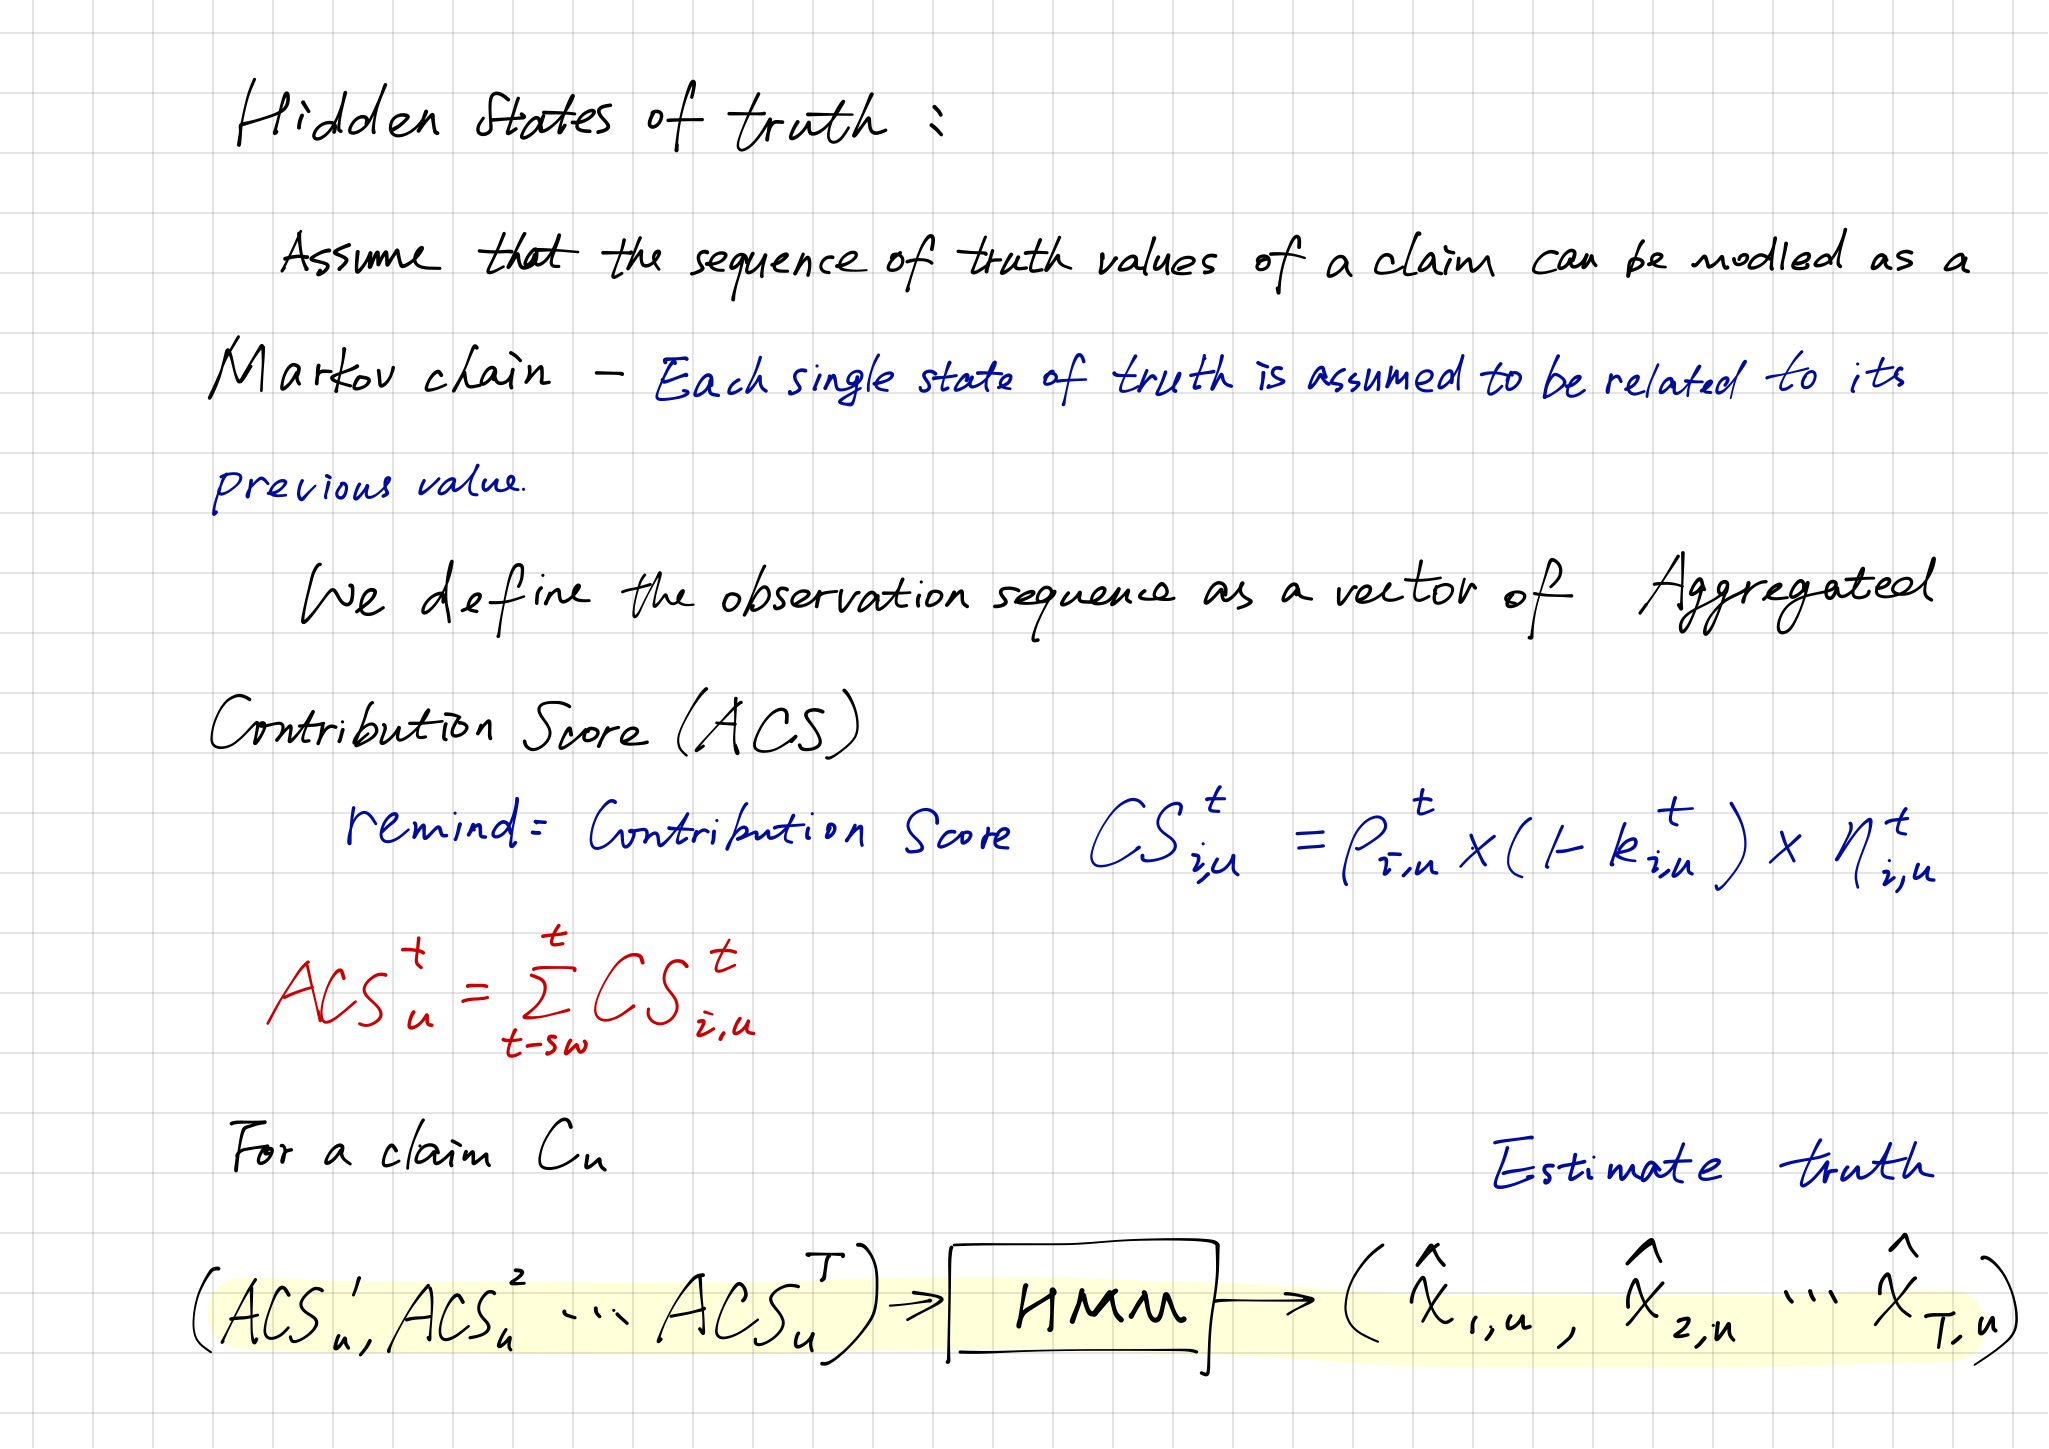 Hidden States of truth :
Assume that the sequence of truth values of a claim can be modled as a
Markov chain - Each single state of truth is assumed to be related to its
previous value.
We define the observation sequence as a vector of Aggregated
Contribution Score (ACS)
remind = Contribution Score CS_{i,u}^t = ρ_{i,u}^t × (1 - k_{i,u}^t) × η_{i,u}^t
ACS_u^t = ∑_{t-sw}^t CS_{i,u}^t
For a claim C_u
Estimate truth
(ACS_u^1, ACS_u^2 ... ACS_u^T) → HMM → (x̂_{1,u}, x̂_{2,u} ... x̂_{T,u})